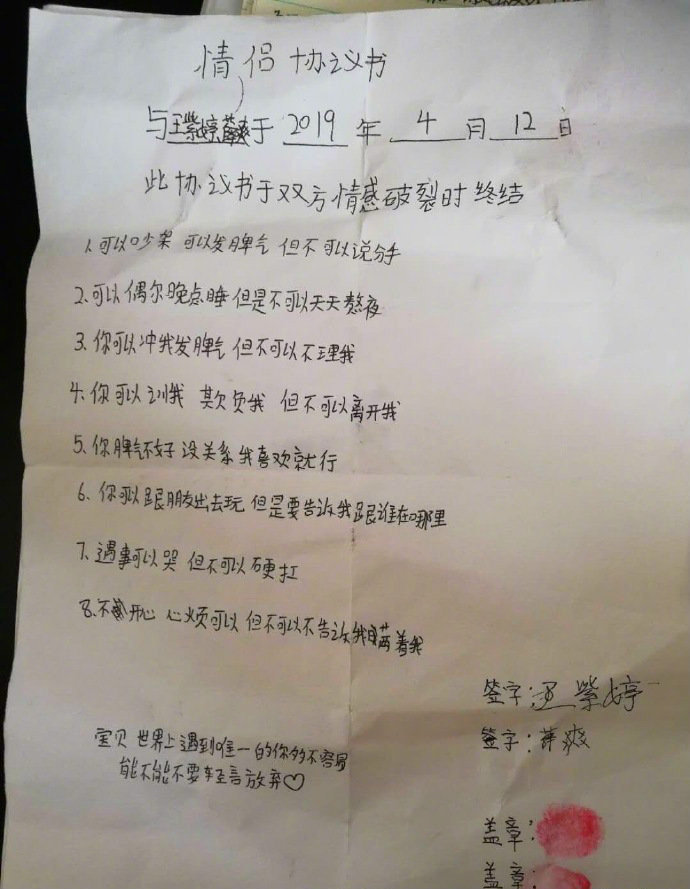 情侣协议书
与王紫婷薛爽于2019年4月12日
此协议书于双方情感破裂时终结
1.可以吵架 可以发脾气 但不可以说分手
2.可以偶尔晚点睡但是不可以天天熬夜
3.你可以冲我发脾气 但不可以不理我
4.你可以训我 欺负我 但不可以离开我
5.你脾气不好 没关系 我喜欢就行
6、你可以跟朋友出去玩 但是要告诉我跟谁在哪里
7、遇事可以哭 但不可以硬扛
8.不开心 心烦可以 但不可以不告诉我瞒着我
签字:王紫婷
签字:薛爽
宝贝 世界上遇到唯一的你多不容易
能不能不要轻言放弃♡
盖章:
盖章: